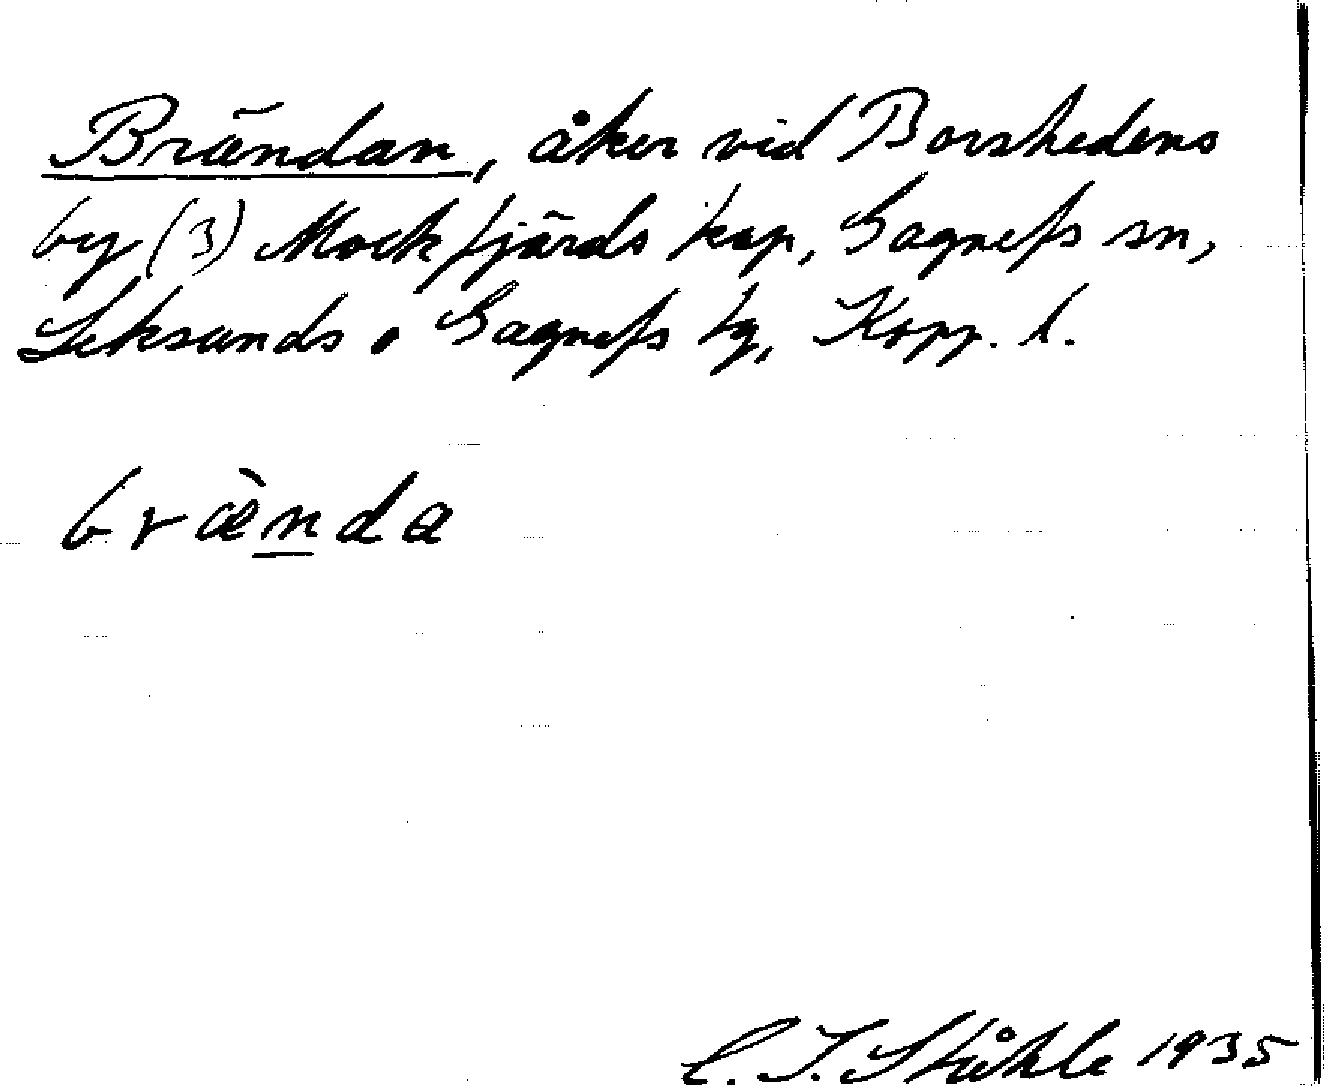 Brändan, åker vid Borshedens
by (3) Mockfjärds kap, Gagnefs sn,
Leksands o Gagnefs tg, Kopp. l.
brænda
C. I. Ståhle 1935